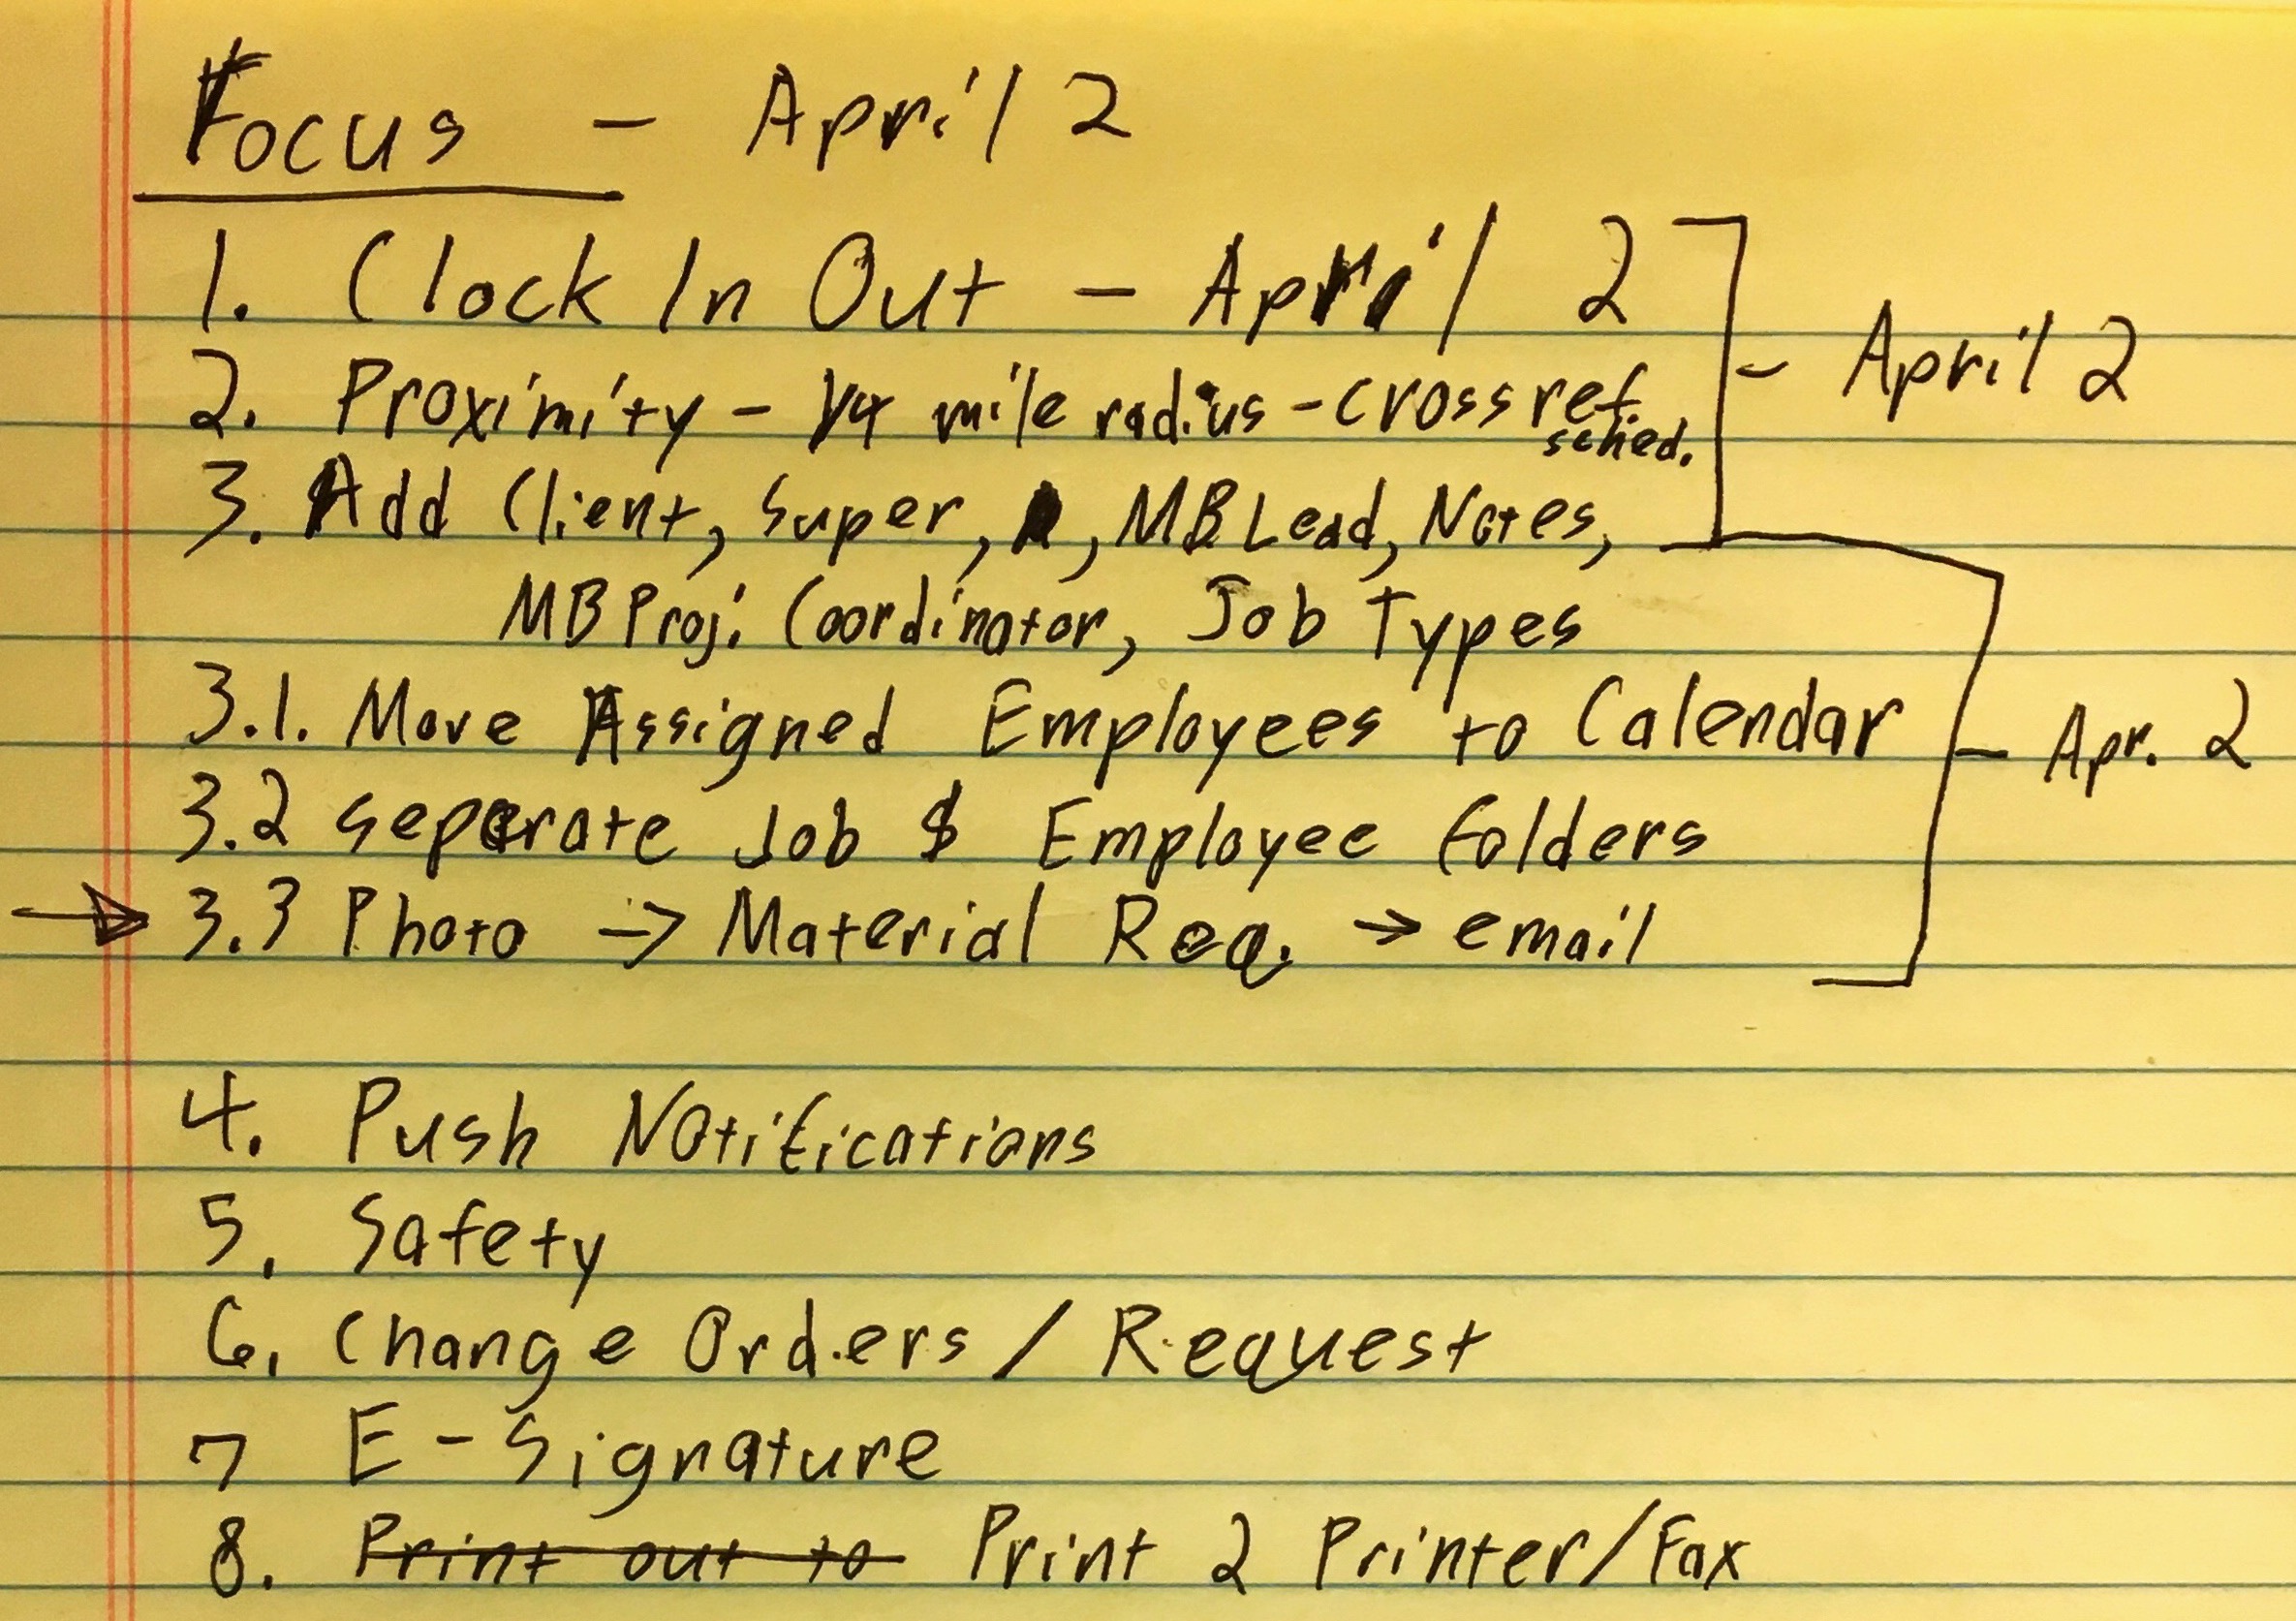 Focus - April 2
1. Clock In Out - April 2
- April 2
2. Proximity - 1/4 mile radius - cross ref. sched.
3. Add Client, Super, , MB Lead, Notes,
MB Proj. Coordinator, Job Types
3.1. Move Assigned Employees to Calendar
- Apr. 2
3.2 separate Job $ Employee folders
→ 3.3 Photo → Material Req. → email
4. Push Notifications
5. Safety
6. Change Orders / Request
7 E-Signature
8. Print out to Print 2 Printer/Fax